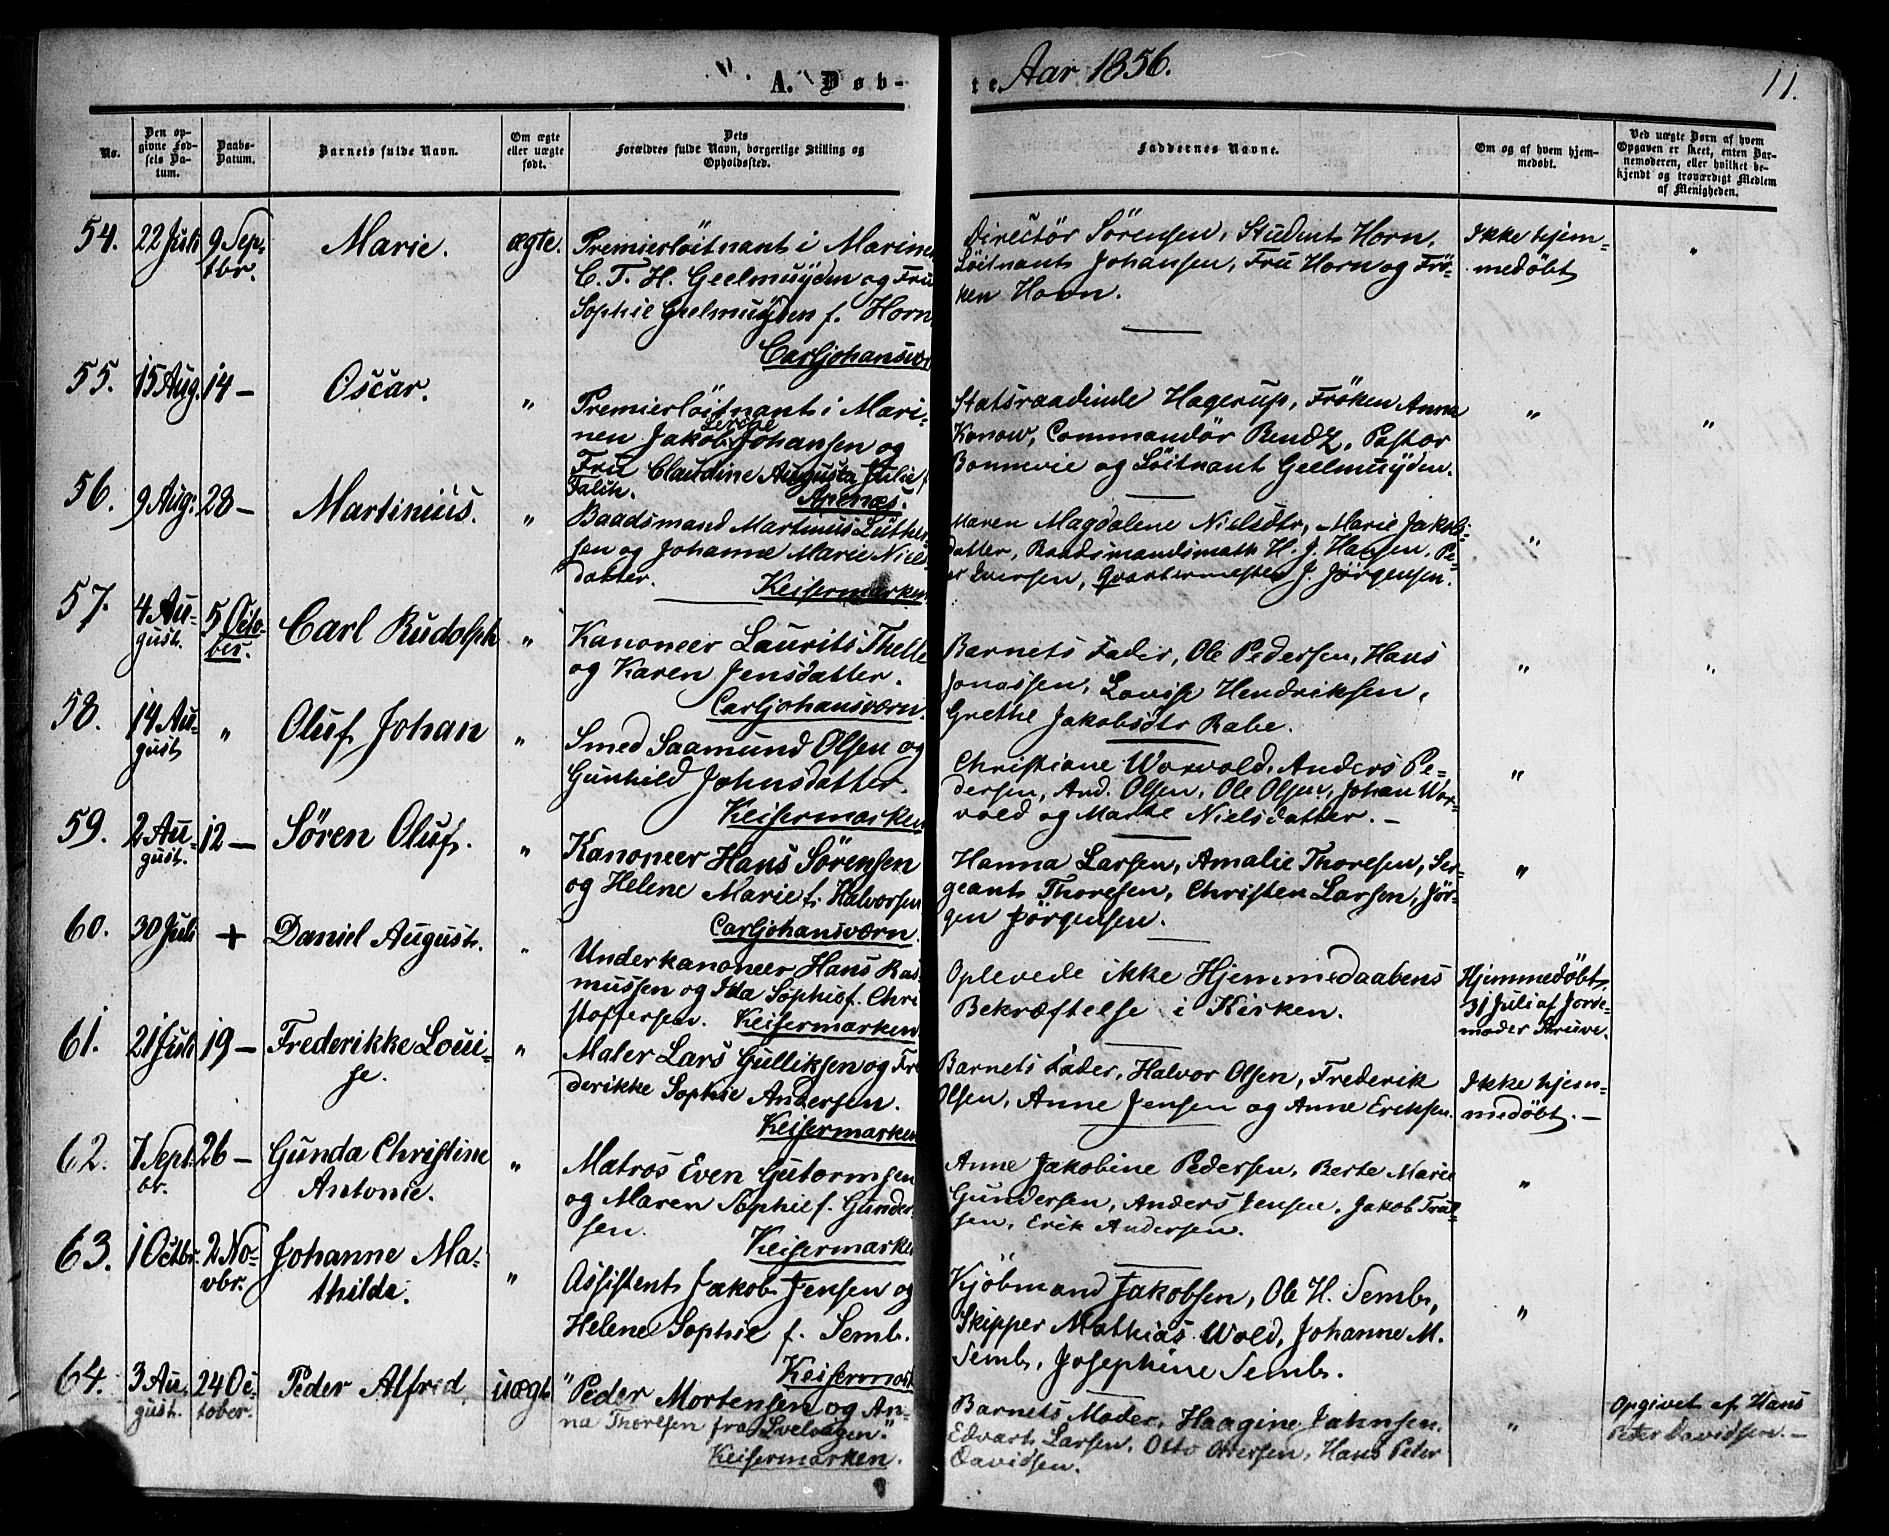 A. Døb-
te. Aar 1856.
11.
No.
Den op-
givne Fød-
sels Da-
tum.
Daabs-
Datum.
Barnets fulde Navn.
Om ægte
eller uægte
født.
Dets
Forældres fulde Navn, borgerlige Stilling og
Opholdssted.
Faddernes Navne.
Om og af hvem hjem-
medøbt.
Ved uægte Børn af hvem
Opgaven er skeet, enten Bar-
nemoderen, eller hvilket be-
kjendt og troværdigt Medlem
af Menigheden.
54.
22 Juli
9 Sep-
tbr.
Marie.
ægte.
Premierlöitnant i Marinen
C. T. H. Geelmuyden og Fru
Sophie Geelmuyden f. Horn.
Carljohansværn
Directör Sörensen, Student Horn,
Löitnant Johansen, Fru Horn og Frö-
ken Horn.
Ikke hjem-
medöbt
"
55.
15 Aug.
14 –
Oscar.
"
Premierlöitnant i Mari-
nen Jakob Johansen og
Fru Claudine Augusta Julie f.
Falch.
Apenæs.
Statsraadinde Hagerup, Fröken Anna
Konow, Commandör Rendz, Pastor
Bonnevie og Löitnant Geelmuyden.
"
"
56.
9 Aug.
28 –
Martinius.
"
Baadsmand Martinus Luther-
sen og Johanne Marie Niels-
datter.
Keisermarken
Maren Magdalene Nielsdtr, Marie Jakobs-
datter, Baadsmandsmath H. J. Hansen, Pe-
er Iversen, Qvartermester J. Jörgensen.
"
57.
4 Au-
gust.
5 Octo-
ber.
Carl Rudolph
"
Kanoneer Laurits Thelle
og Karen Jensdatter.
Carljohansværn.
Barnets Fader, Ole Pedersen, Hans
Jonassen, Lovise Hendriksen,
Grethe Jakobsdtr Rabe.
"
"
58.
14 Au-
gust
"
Oluf Johan
"
Smed Saamund Olsen og
Gunhild Johnsdatter.
Keisermarken
Christiane Worvold, Anders Pe-
dersen, And. Olsen, Ole Olsen, Johan Wor-
vold og Marte Nielsdatter. –
"
59.
2 Au-
gust.
12 –
Sören Oluf.
"
Kanoneer Hans Sörensen
og Helene Marie f. Halvorsen
Carljohansværn.
Hanna Larsen, Amalie Thoresen, Ser-
geant Thoresen, Christen Larsen, Jör-
gen Jörgensen.
"
60.
30 Juli
+
Daniel August.
"
Underkanoneer Hans Ras-
mussen og Ida Sophie f. Chri-
stoffersen. Keisermarken
Oplevede ikke Hjemmedaabens
Bekræftelse i Kirken.
Hjemmedöbt
31 Juli af Jorde-
moder Struve.
61.
21 Juli
19 –
Frederikke Loui-
se.
"
Maler Lars Gulliksen og Fre-
derikke Sophie Andersen.
Keisermarken
Barnets Fader, Halvor Olsen, Frederik
Olsen, Anne Jensen og Anne Eriksen.
Ikke hjem-
medöbt. –
62.
7 Sept-
br.
26 –
Gunda Christine
Antonie.
"
Matros Even Gutormsen
og Maren Sophie f. Gunder-
sen.
Keisermarken
Anne Jakobine Pedersen, Berte Marie
Gundersen, Anders Jensen, Jakob Trul-
sen, Erik Andersen.
"
63.
1 Octbr.
2 No-
vbr.
Johanne Ma-
thilde.
"
Assistent Jakob Jensen og
Helene Sophie f. Semb.
Keisermark
Kjöbmand Jakobsen, Ole H. Semb,
Skipper Mathias Wold, Johanne M.
Semb, Josephine Semb.
"
64.
3 Au-
gust.
24 Oc-
tober.
Peder Alfred
uægte
"Peder Mortensen og An-
na Thoresen fra Svelvagen."
Keisermarken.
Barnets Moder, Haagine Jahnsen,
Edvart Larsen, Otto Ottersen, Hans Peter
Davidsen.
"
Opgivet af Hans
Peter Davidsen. –